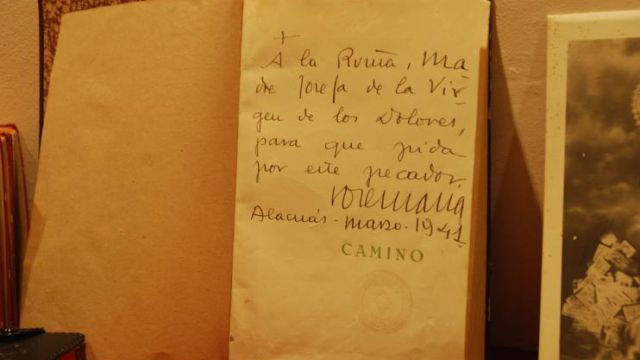 +
A la Rvma, Ma
dre Josefa de la Vir
gen de los Dolores,
para que pida
por este pecador.
Josemaría
Alacuás - marzo - 1941
CAMINO